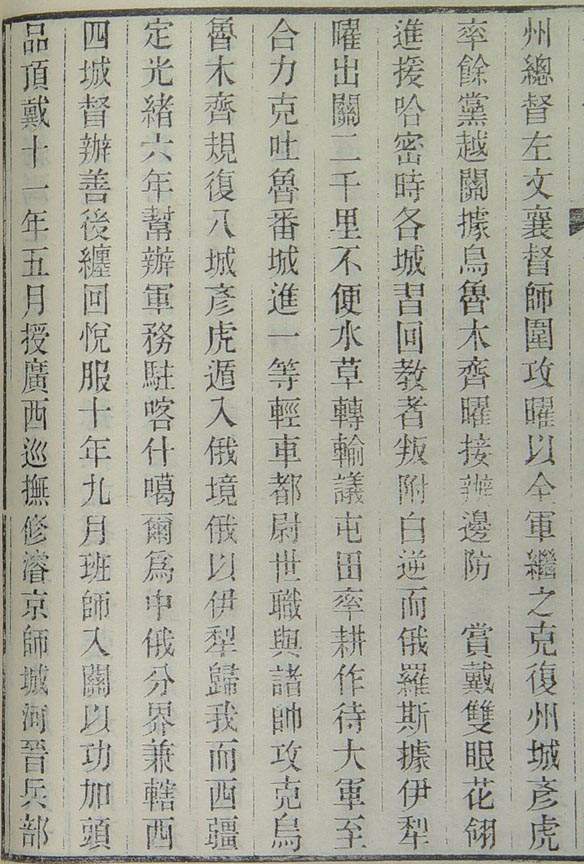 州總督左文襄督師圍攻曜以全軍繼之克復州城彥虎
率餘黨越關據烏魯木齊曜接辦邊防　賞戴雙眼花翎
進援哈密時各城習回教者叛附白逆而俄羅斯據伊犁
曜出關二千里不便水草轉輸議屯田率耕作待大軍至
合力克吐魯番城進一等輕車都尉世職與諸帥攻克烏
魯木齊規復八城彥虎遁入俄境俄以伊犁歸我而西疆
定光緒六年幫辦軍務駐喀什噶爾為中俄分界兼轄西
四城督辦善後纏回悅服十年九月班師入關以功加頭
品頂戴十一年五月授廣西巡撫修濬京師城河晉兵部